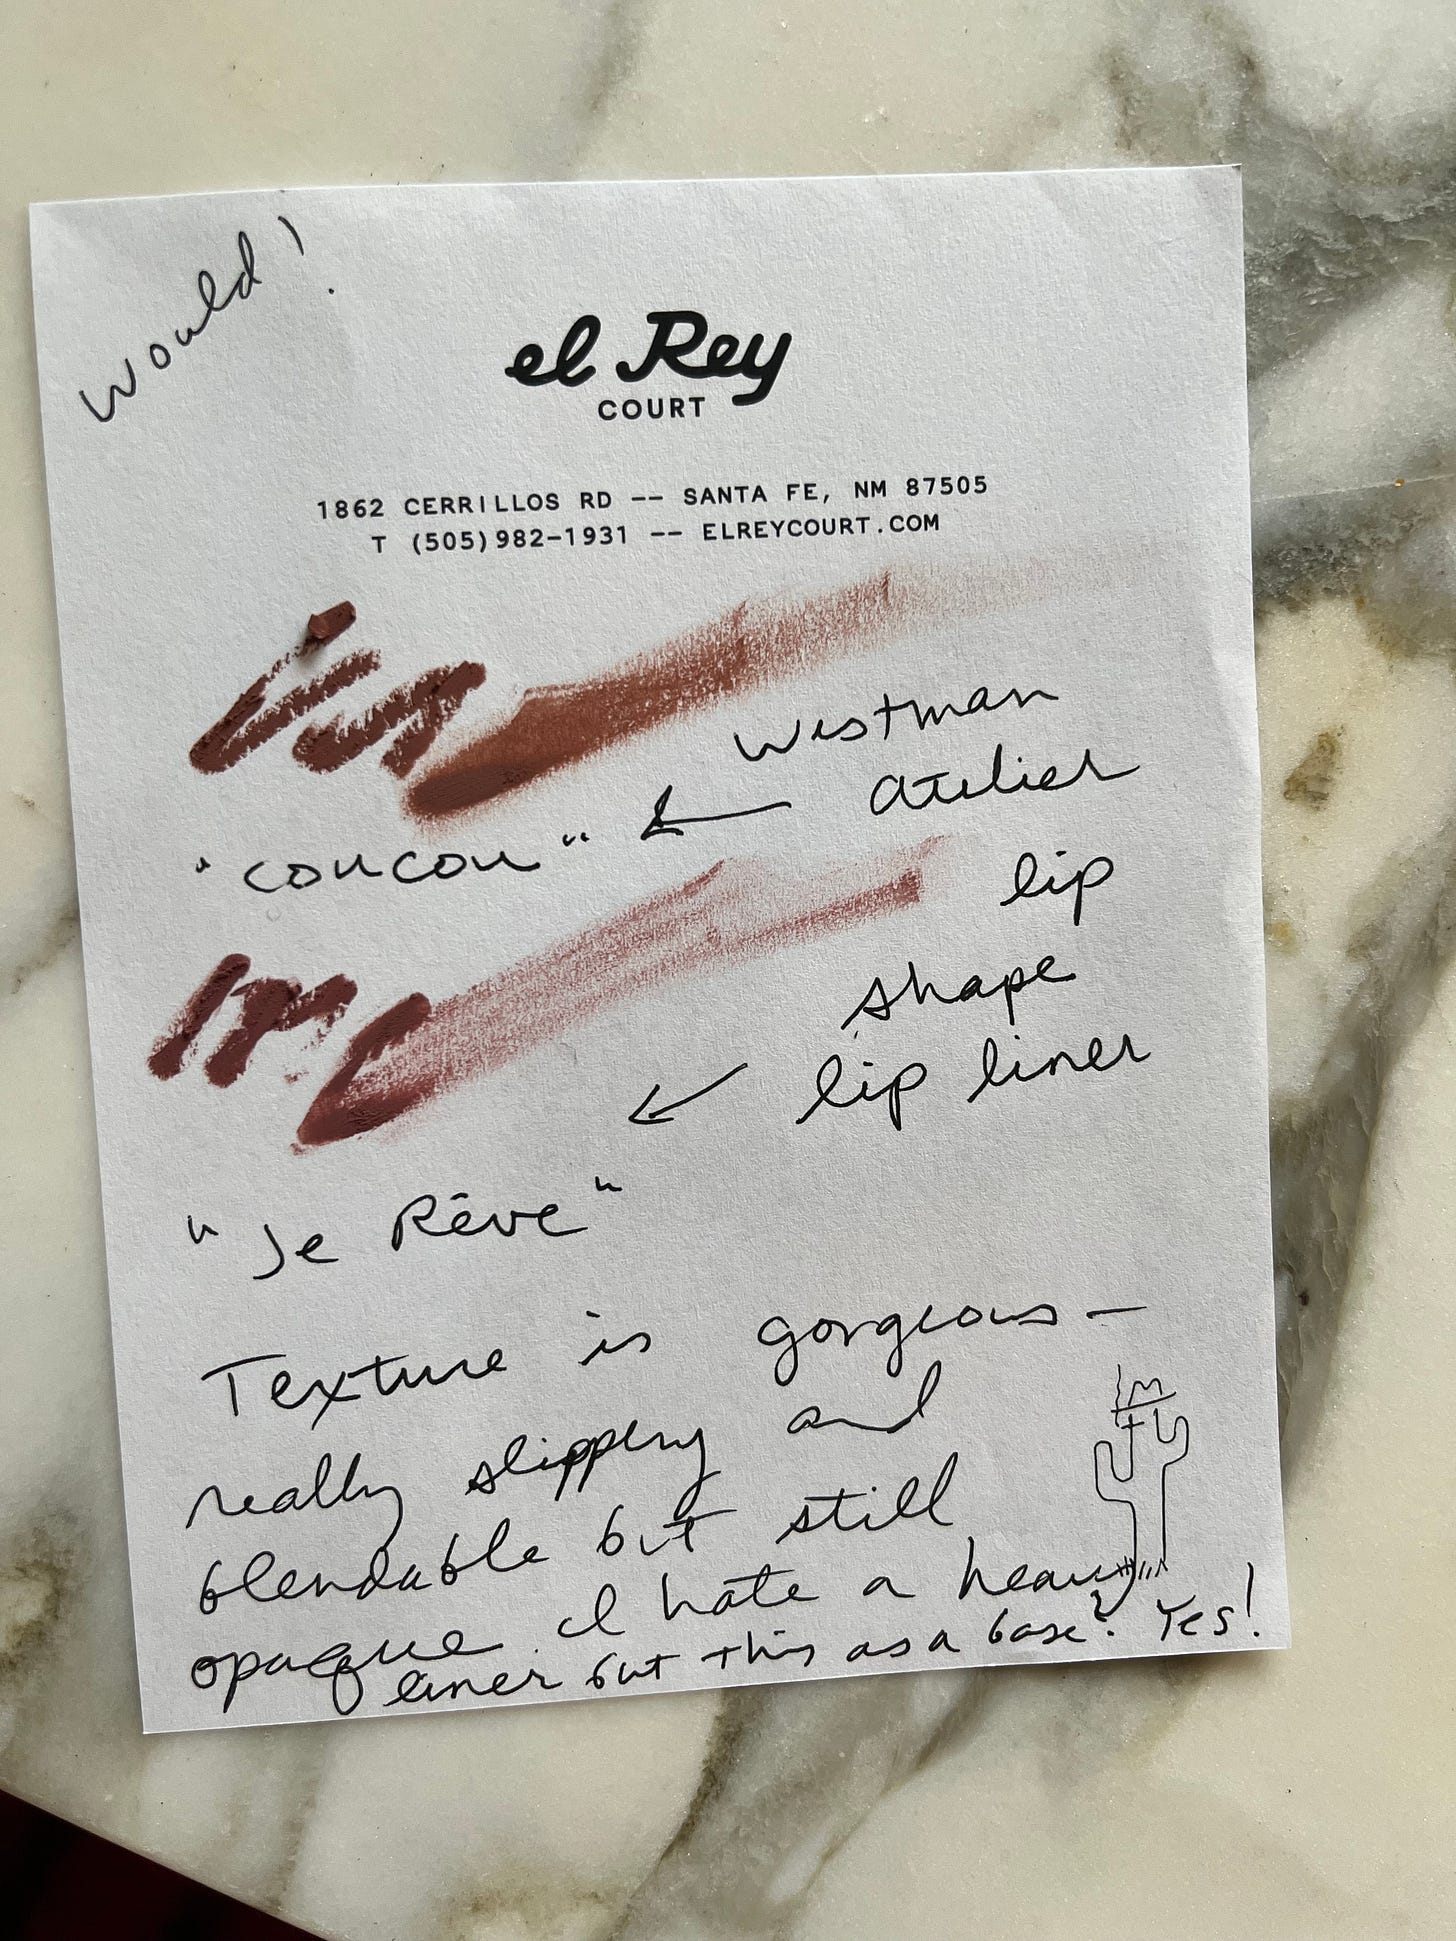 Would!
el Rey
COURT
1862 CERRILLOS RD -- SANTA FE, NM 87505
T (505)982-1931 -- ELREYCOURT.COM
Westman
atelier
"coucou" ←
lip
shape
lip liner
←
"Je Rêve"
Texture is gorgeous —
really slippery and
blendable but still
opaque. I hate a heavy
liner but this as a base? Yes!